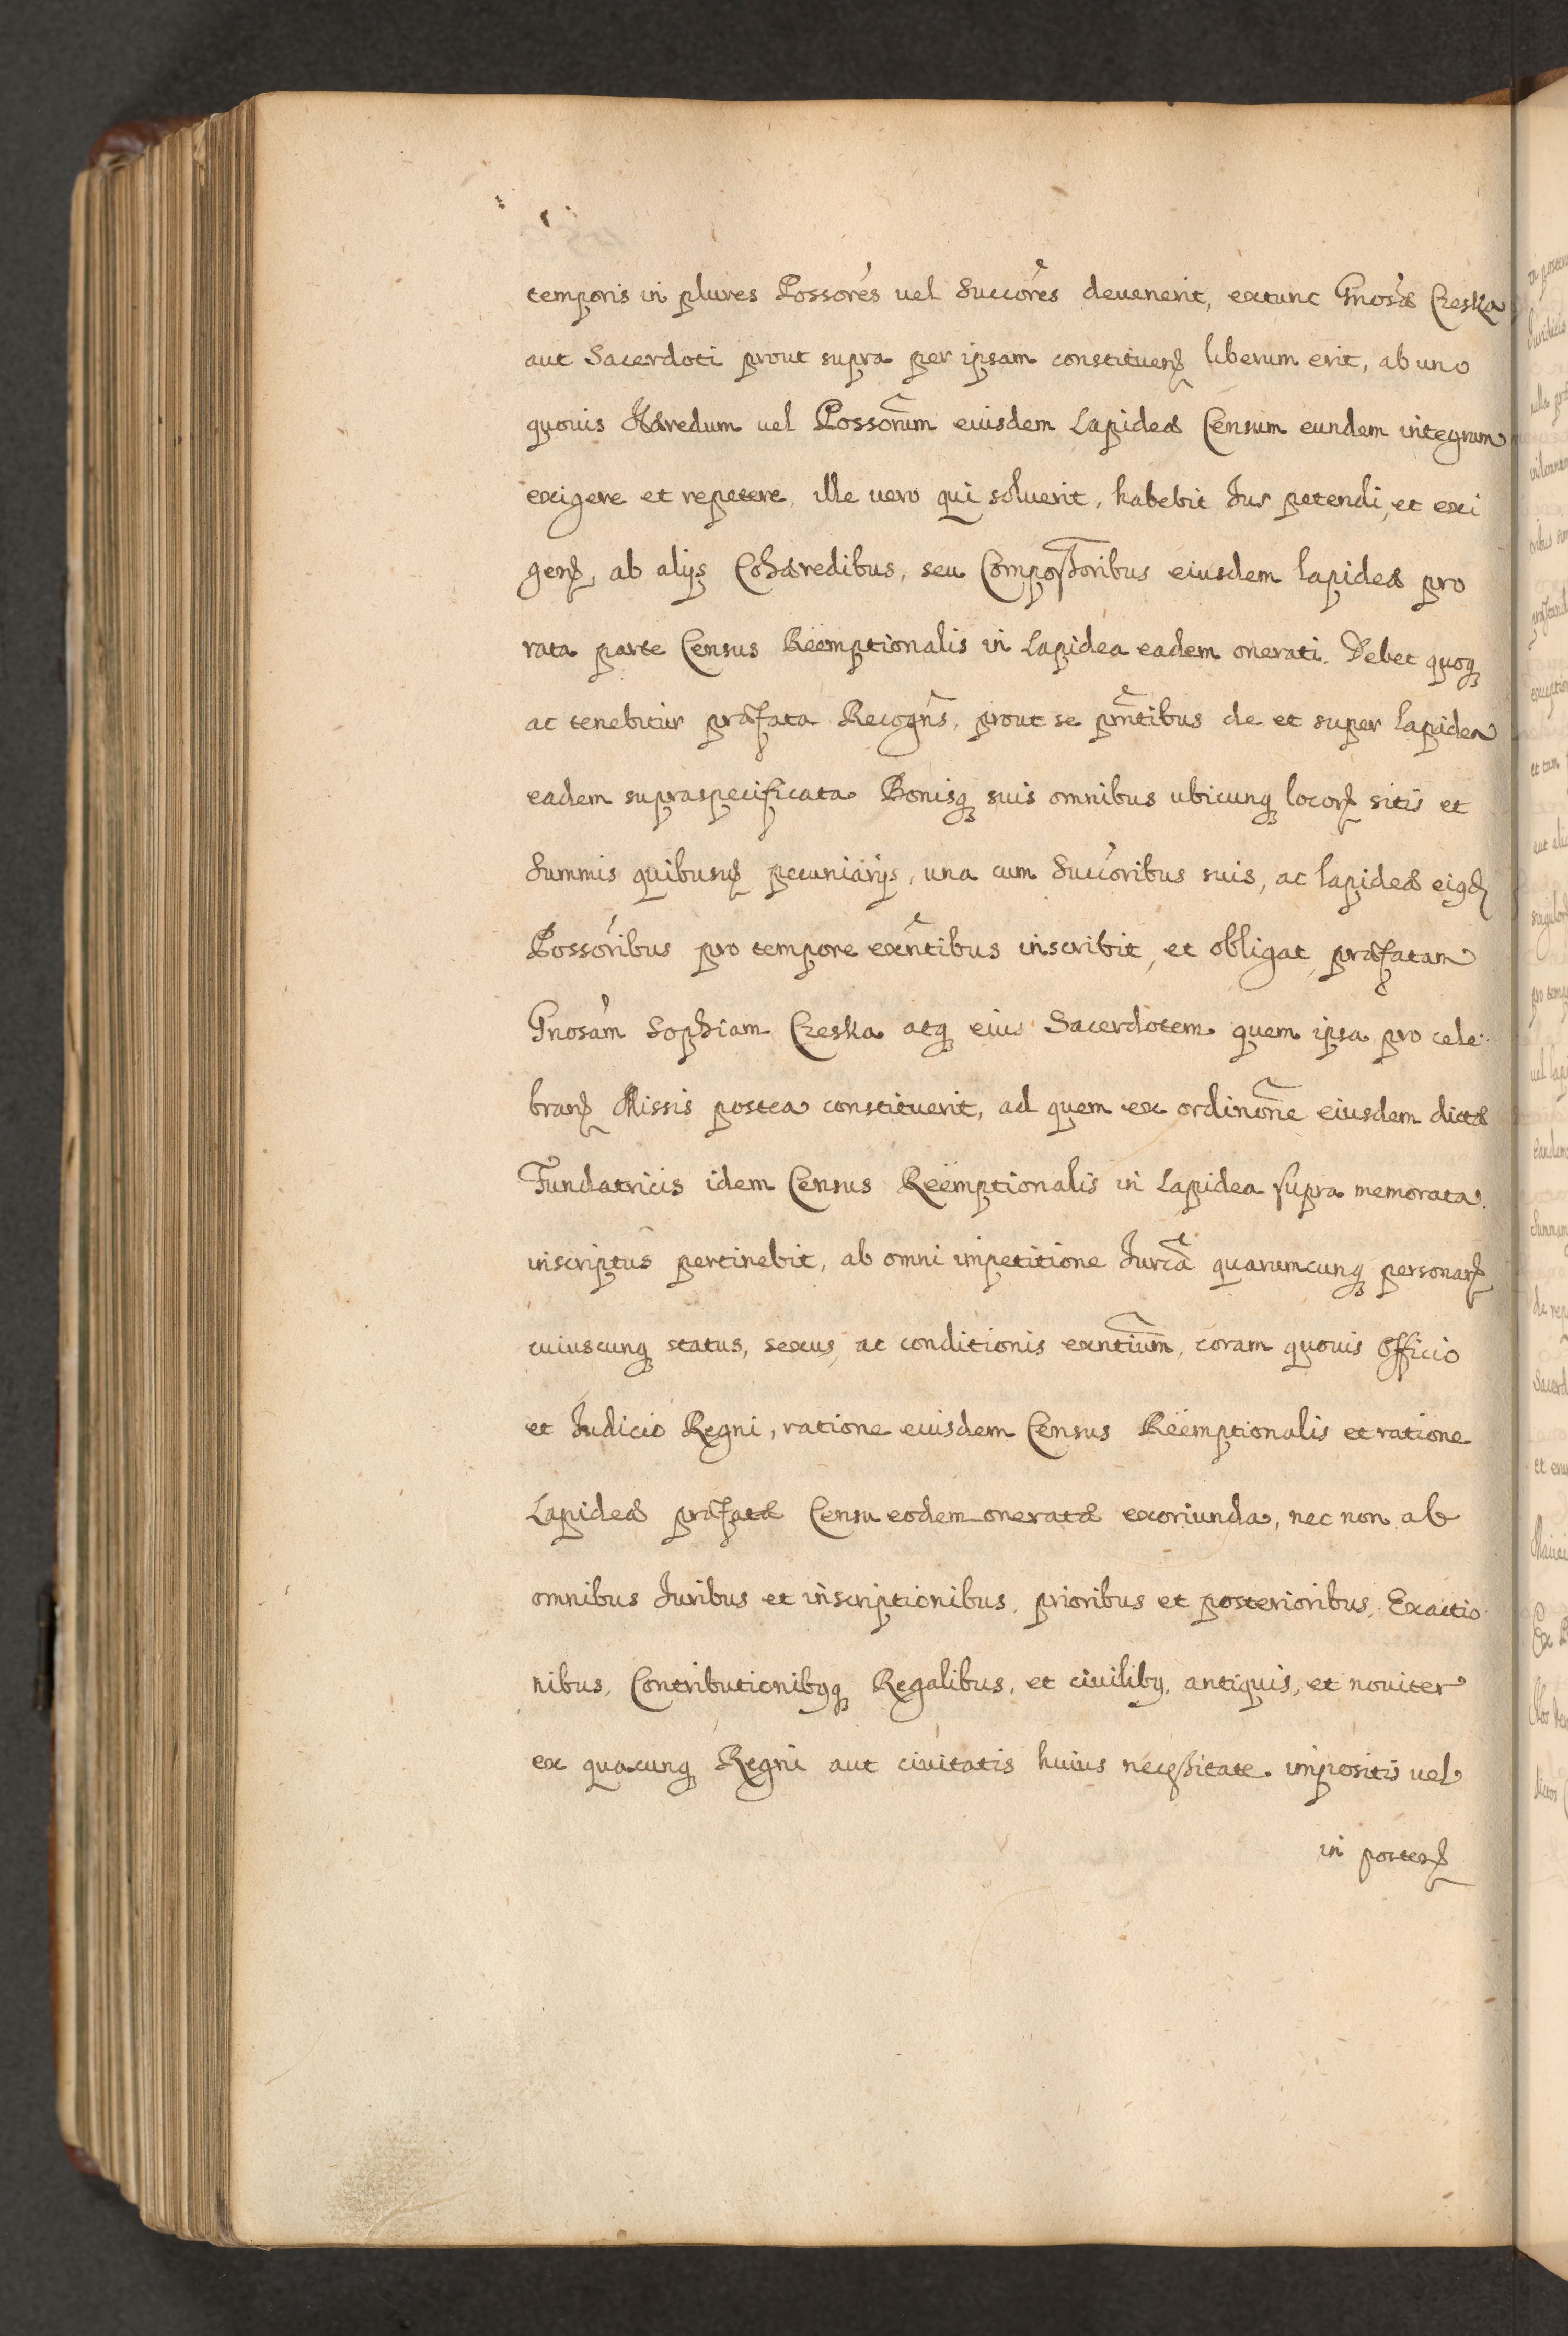 temporis in plures Possores uel Succores deuenerit, extunc Gnosæ Czeska
aut Sacerdoti prout supra per ipsam constituenꝝ liberum erit, ab uno
quouis Hæredum uel Possorum eiusdem Lapideæ Censum eundem integrum
exigere et repetere, ille uero qui soluerit, habebit Ius petendi, et exi
genꝝ, ab alijs Cohæredibus, seu Compossoribus eiusdem lapideæ pro
rata parte Census Reëmptionalis in Lapidea eadem onerati. Debet quoqꝫ
ac tenebitur præfata Recogñs, prout se pñtibus de et super lapidea
eadem supraspecificata Bonisqꝫ suis omnibus ubicunqꝫ locorꝝ sitis et
Summis quibusuꝫ pecuniarijs, una cum Succoribus suis, ac lapideæ eiusdꝫ
Possoribus pro tempore exñtibus inscribit, et obligat, præfatam
Gnosam Sophiam Czeska atqꝫ eius Sacerdotem quem ipsa pro cele
branꝝ Missis postea constituerit, ad quem ex ordinõne eiusdem dictæ
Fundatricis idem Census Reëmptionalis in Lapidea supra memorata
inscriptus pertinebit, ab omni impetitione Iurca quarumcunqꝫ personarꝝ
cuiuscunqꝫ status, sexus, ac conditionis exntium, coram quouis Officio
et Iudicio Regni, ratione eiusdem Census Reëmptionalis et ratione
Lapideæ præfatæ Censu eodem oneratæ exoriunda, nec non ab
omnibus Iuribus et inscriptionibus, prioribus et posterioribus, Exactio
nibus, Contributionibꝰqꝫ Regalibus, et ciuilibꝰ, antiquis, et nouiter
ex quacunqꝫ Regni aut ciuitatis huius necessitate impositis uel
in posterꝝ